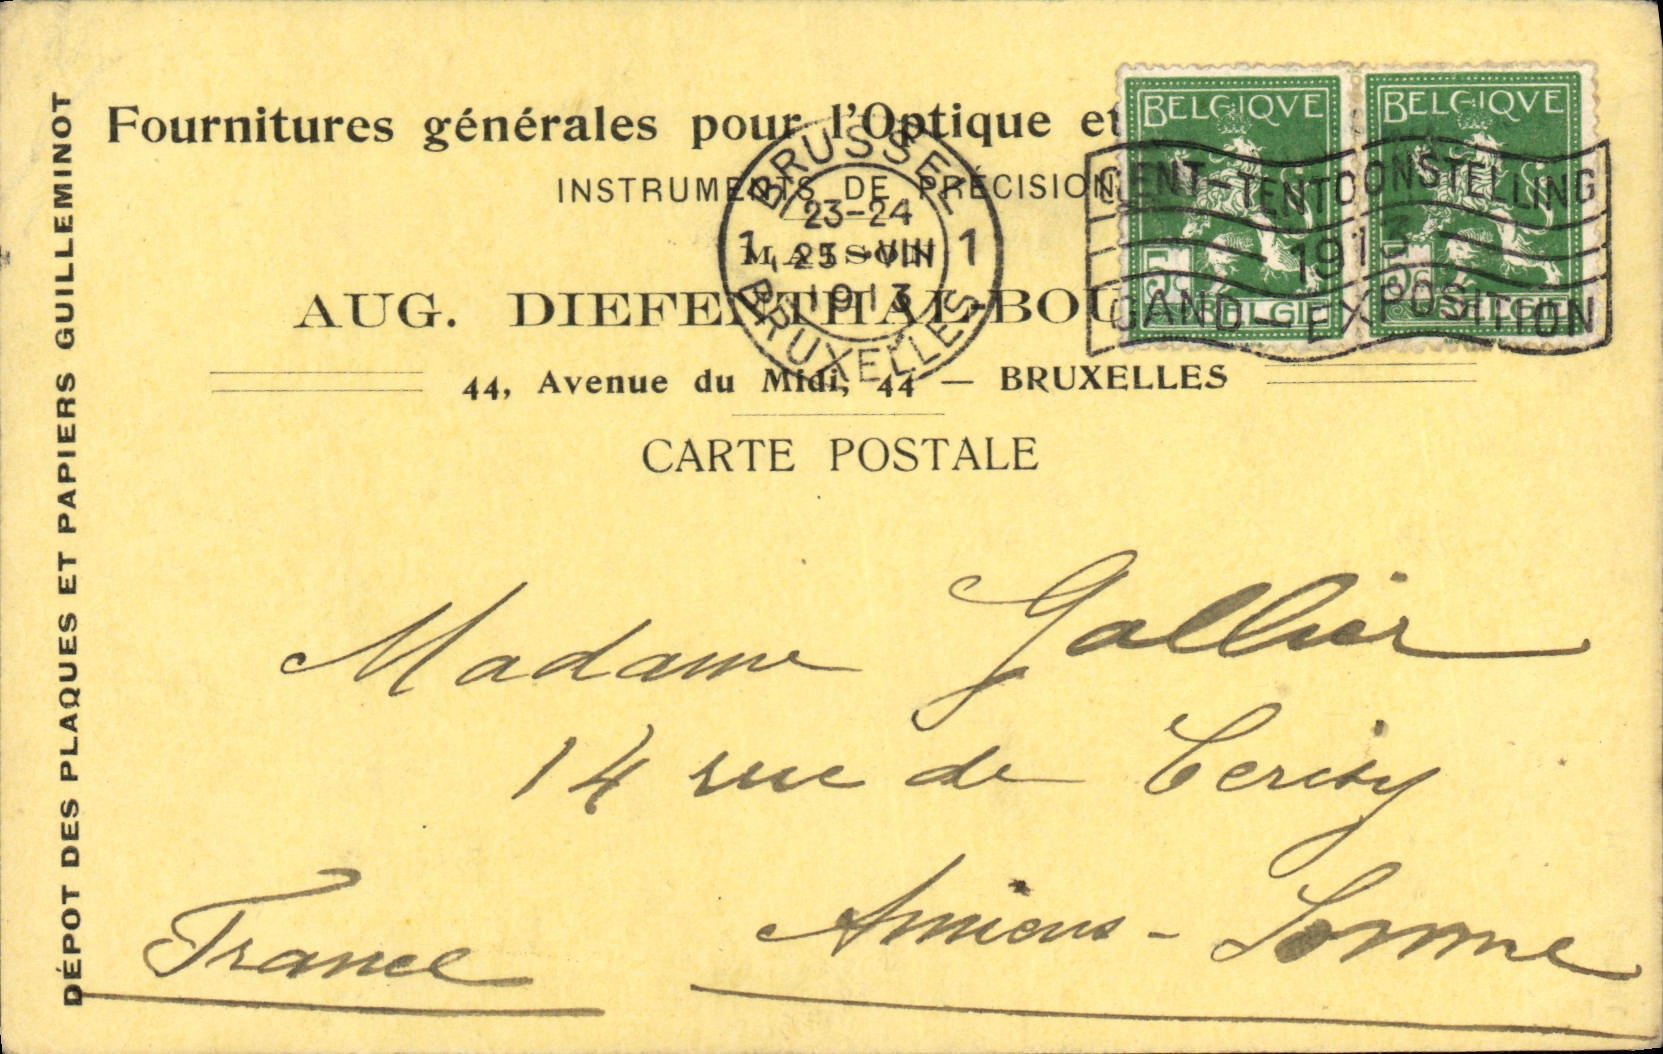 DÉPOT DES PLAQUES ET PAPIERS GUILLEMINOT
Fournitures générales pour l'Optique et
INSTRUMENTS DE PRÉCISION
MAISON
AUG. DIEFENTHAL-BOU
44, Avenue du Midi, 44 — BRUXELLES
CARTE POSTALE
BRUSSEL
1 23-24 1
25 VIII
1913
BRUXELLES
BELGIQVE
5c
BELGIË
BELGIQVE
5c
BELGIË
GENT-TENTOONSTELLING
1913
GAND-EXPOSITION
Madame Gallier
14 rue de Cerisy
Amiens - Somme
France